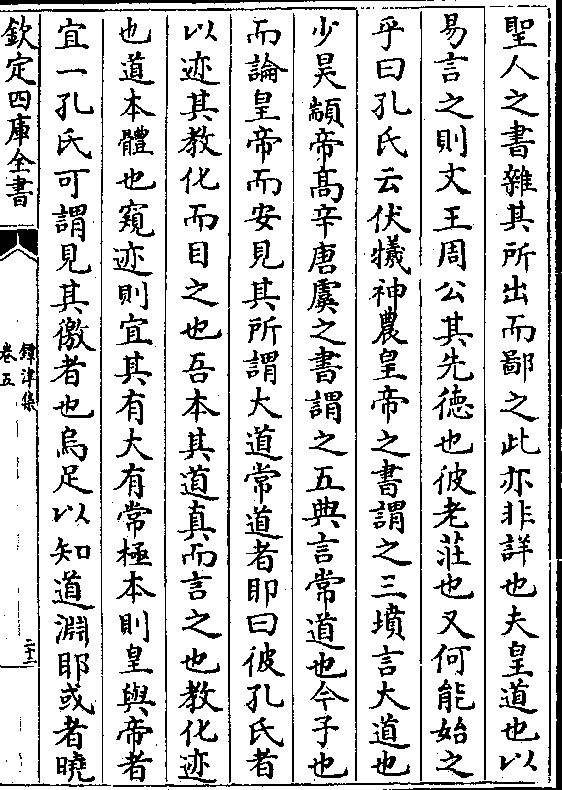 聖人之書雜其所出而鄙之此亦非詳也夫皇道也以
易言之則文王周公其先徳也彼老莊也又何能始之
乎曰孔氏云伏犧神農皇帝之書謂之三墳言大道也
少昊顓帝髙辛唐虞之書謂之五典言常道也今子也
而論皇帝而安見其所謂大道常道者耶曰彼孔氏者
以迹其教化而目之也吾本其道真而言之也教化迹
也道本體也窺迹則宜其有大有常極本則皇與帝者
宜一孔氏可謂見其徼者也烏足以知道淵耶或者曉
欽定四庫全書
鐔津集
卷五
二十二